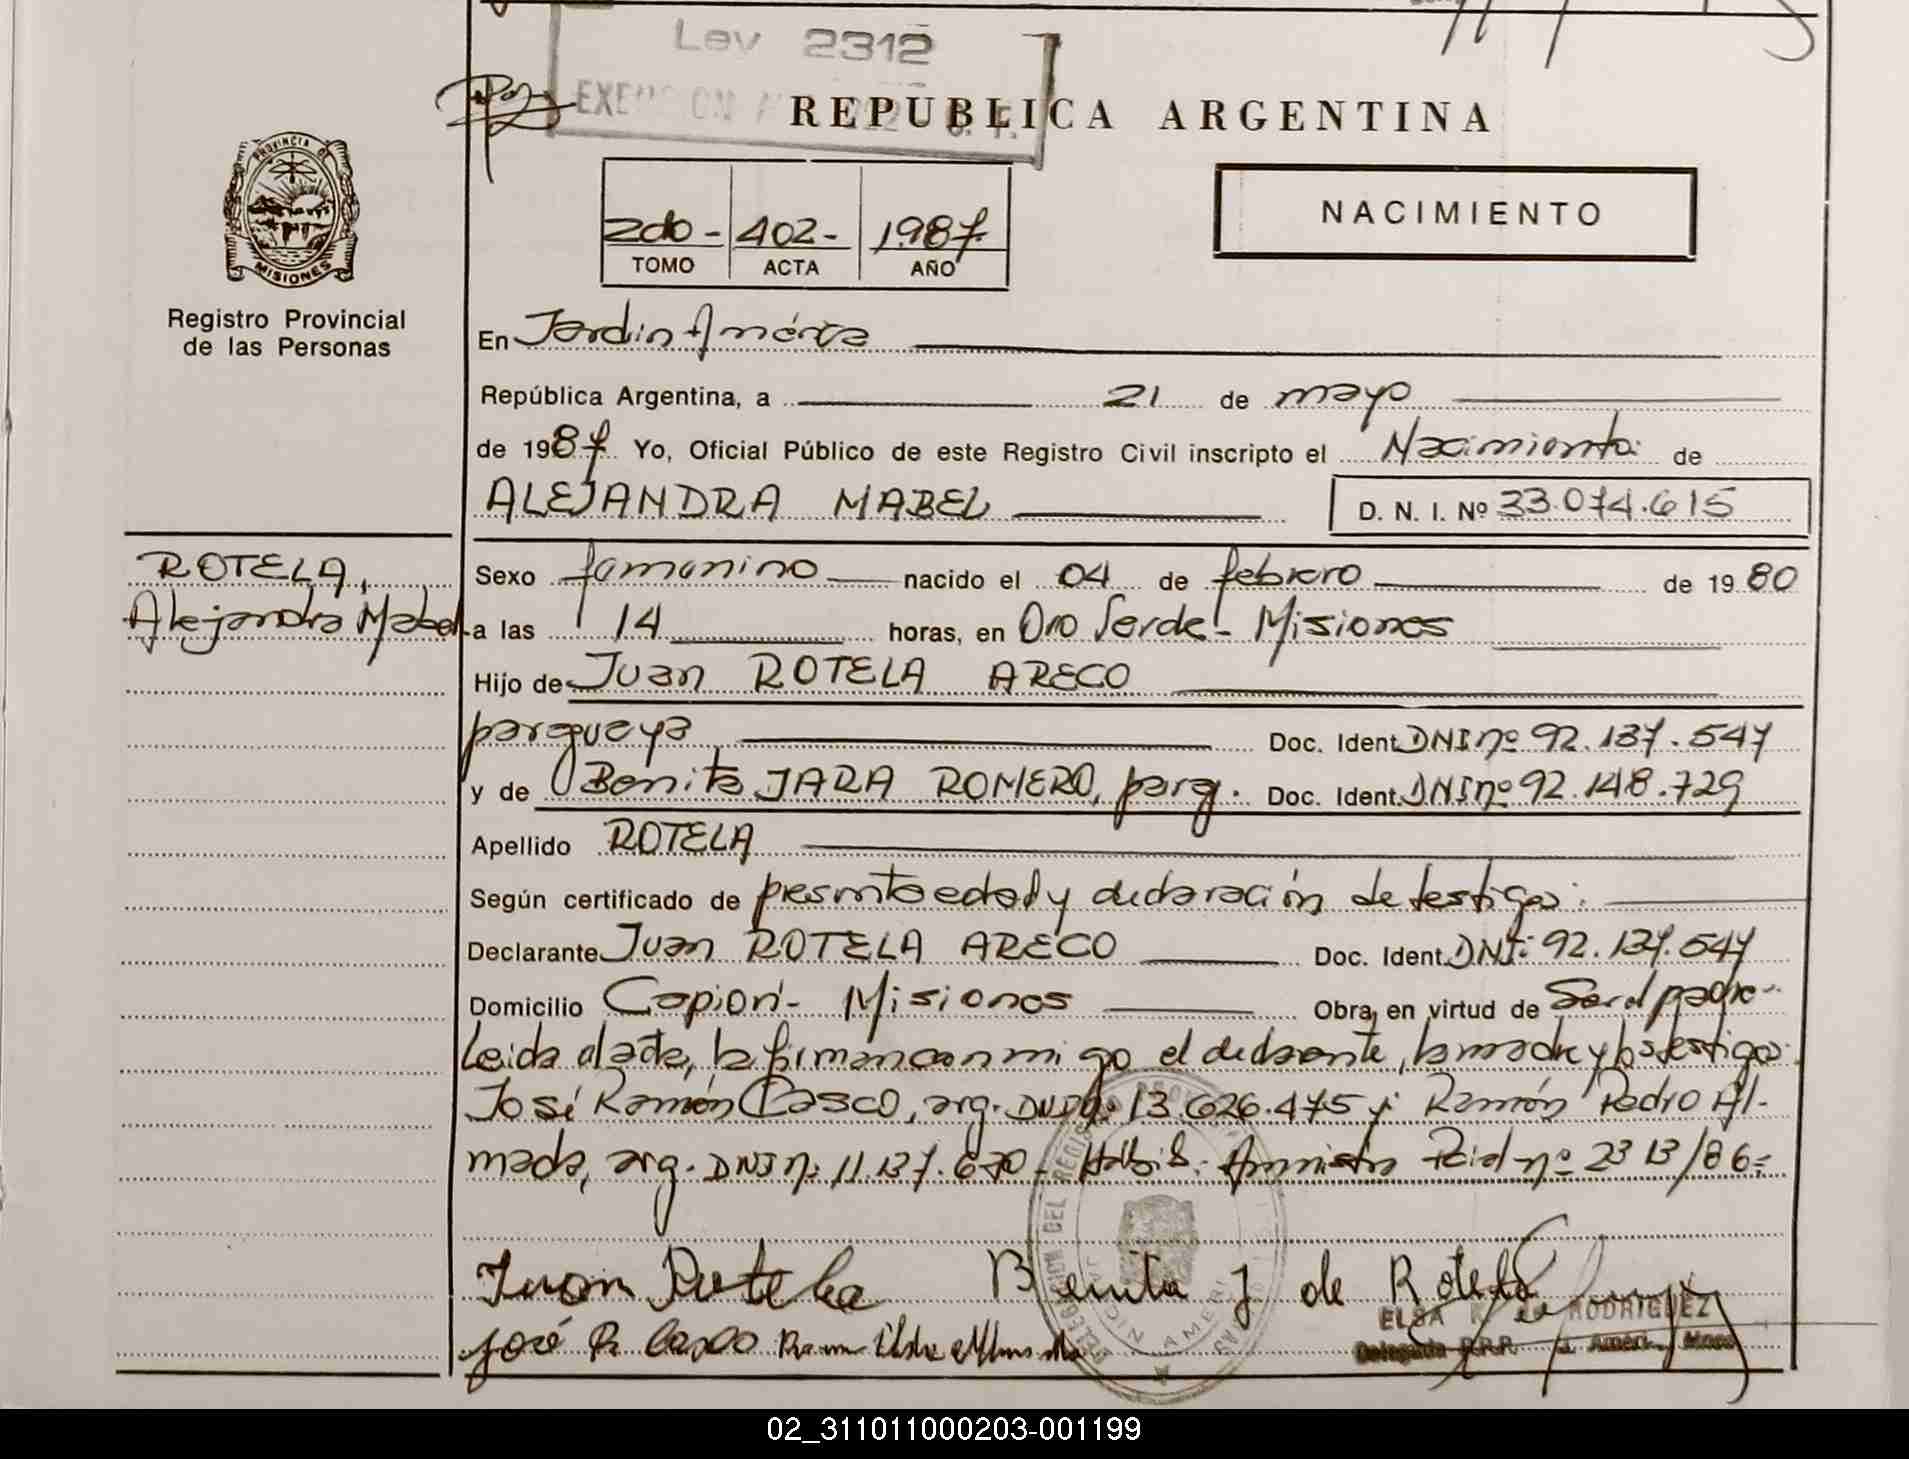 Ley 2312
REPUBLICA ARGENTINA
PROVINCIA DE
MISIONES
Registro Provincial
de las Personas
2do - 402 - 1987
TOMO ACTA AÑO
NACIMIENTO
En Jardín América
República Argentina, a 21 de mayo
de 1987 Yo, Oficial Público de este Registro Civil inscripto el Nacimiento de
ALEJANDRA MABEL D. N. I. Nº 33.074.615
ROTELA,
Alejandra Mabel
Sexo femenino nacido el 04 de febrero de 1980
a las 14 horas, en Oro Verde - Misiones
Hijo de Juan ROTELA ARECO
paragueya Doc. Ident. DNI nº 92.137.547
y de Benita JARA ROMERO, parg. Doc. Ident. DNI nº 92.148.729
Apellido ROTELA
Según certificado de presunta edad y declaración de testigos:
Declarante Juan ROTELA ARECO Doc. Ident. DNI: 92.137.547
Domicilio Capioví - Misiones Obra, en virtud de Ser el padre -
Leida el acta, la firman conmigo el declarante, la madre y los testigos:
José Ramón CASCO, arg. DNI nº 13.626.475 y Ramón Pedro Al-
mada, arg. DNI nº 11.137.670 - Amnistía nº 2313/86 =
Juan Rotela Benita J. de Rotela
ELSA RODRIGUEZ
José R. Casco
Delegada R.P.P.
02_311011000203-001199